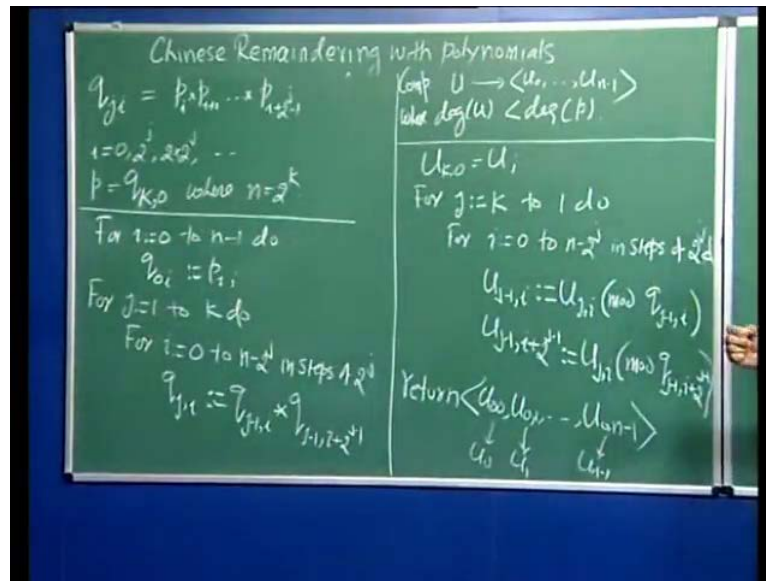 Chinese Remaindering with polynomials
q_{ji} = p_i * p_{i+1} ... * p_{i+2^j-1}
i=0, 2^j, 2*2^j, ...
p = q_{k,0} where n=2^k
For i:=0 to n-1 do
q_{0i} := p_i;
For j:=1 to k do
For i:=0 to n-2^j in steps of 2^j
q_{j,i} := q_{j-1,i} * q_{j-1,i+2^{j-1}}
Comp U → <u_0, ..., u_{n-1}>
where deg(u) < deg(p).
U_{k,0} = U;
For j:=k to 1 do
For i:=0 to n-2^j in steps of 2^j d
U_{j-1,i} := U_{j,i} (mod q_{j-1,i})
U_{j-1,i+2^{j-1}} := U_{j,i} (mod q_{j-1,i+2^{j-1}})
return <u_{00}, u_{01}, ..., u_{0n-1}>
↓ ↓ ↓
u_0 u_1 u_{n-1}